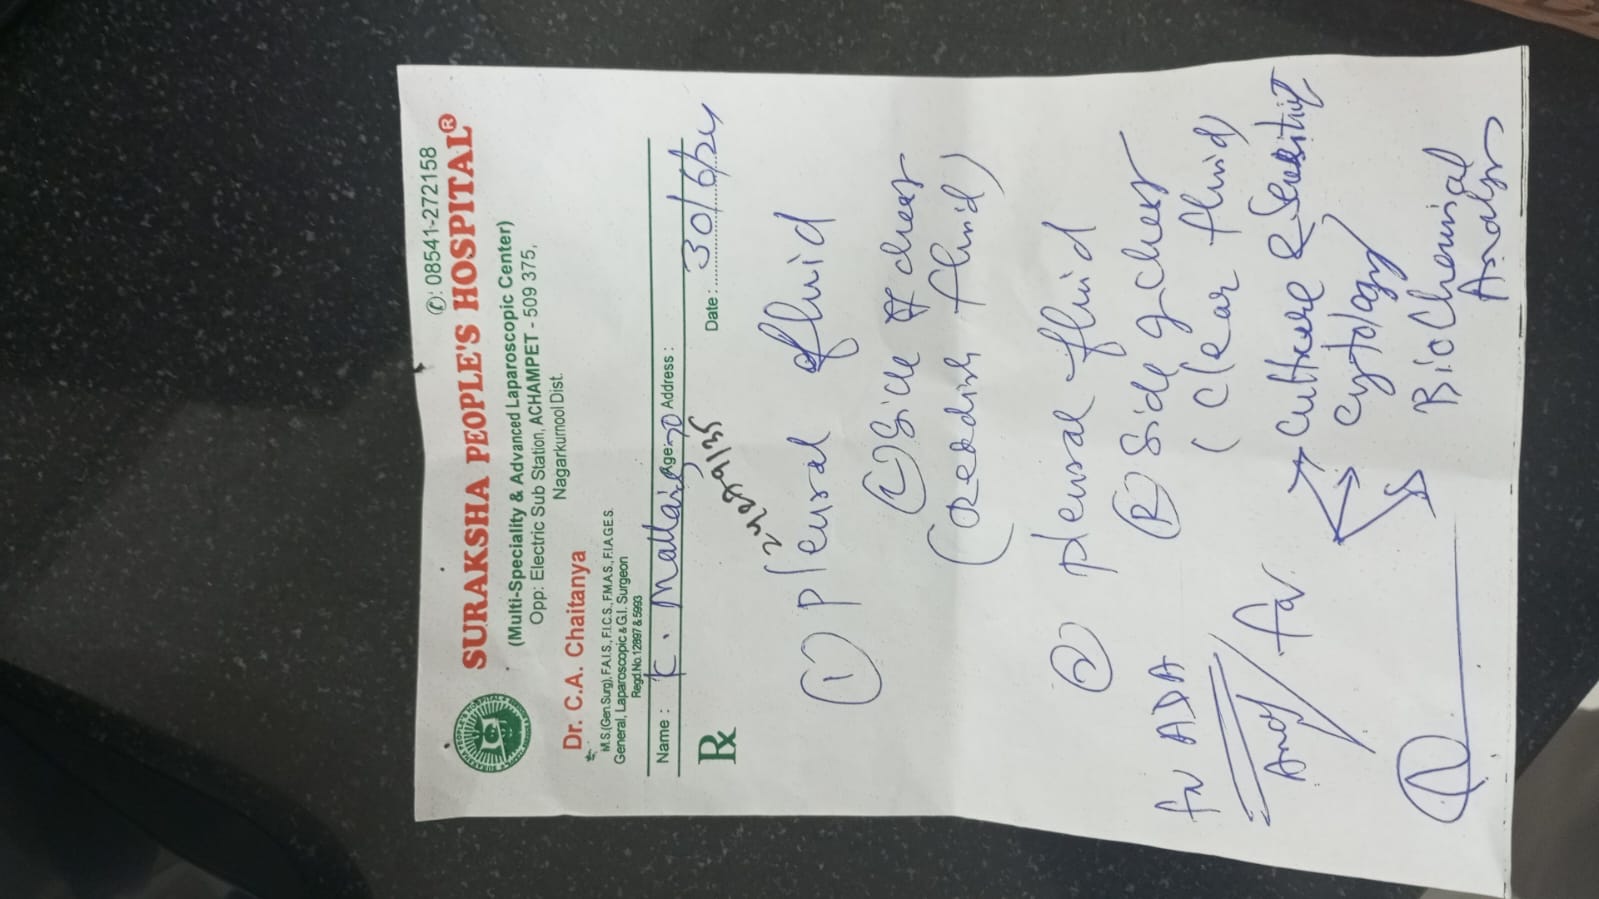 ✆: 08541-272158
SURAKSHA PEOPLE'S HOSPITAL®
(Multi-Speciality & Advanced Laparoscopic Center)
Opp: Electric Sub Station, ACHAMPET - 509 375,
Nagarkurnool Dist.
Dr. C.A. Chaitanya
M.S.(Gen.Surg), F.A.I.S., F.I.C.S., F.M.A.S., F.I.A.G.E.S.
General, Laparoscopic & G.I. Surgeon
Regd.No.12897 & 5993
Name: K. Mallaiah Age: 70 Address:
Date: 30/6/24
Rx
① pleural fluid
Ⓛ Side of chest
(reddish fluid)
② pleural fluid
Ⓡ Side of chest
(clear fluid)
for ADA
And / for
→ Culture & Sensitivity
→ Cytology
→ BioChemical
Analysis